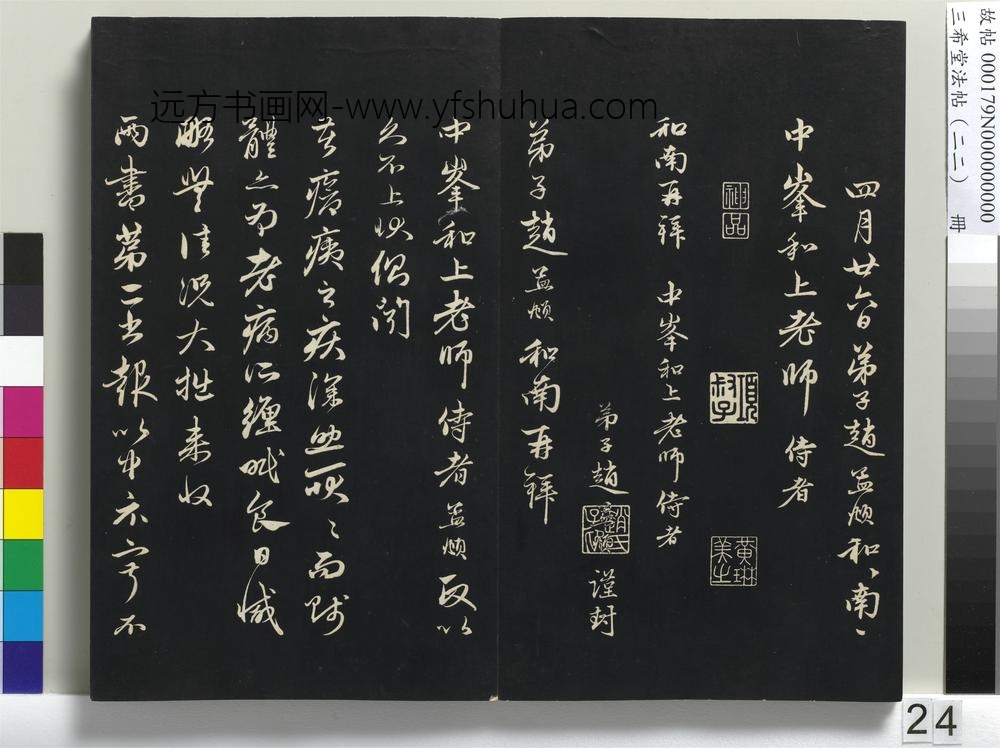 四月廿六日弟子趙孟頫和南
中峯和上老師侍者
神品
項叔子
黃琳美之
和南再拜 中峯和上老師侍者
弟子趙 謹封
弟子趙孟頫和南再拜
中峯和上老師侍者孟頫政以
久不上狀偶聞
苦瘡痍之疾深助耿〻而賤
體亦為老病所纏眠食日減
略無佳況大拙來收
兩書第二書報以中示寂不
远方书画网-www.yfshuhua.com
故帖 000179N000000000
三希堂法帖(二二) 冊
24